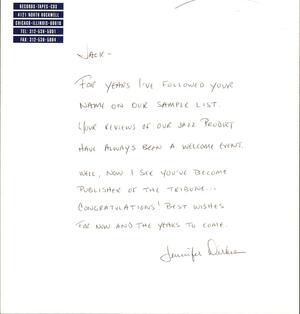 RECORDS-TAPES-CDS
4121 NORTH ROCKWELL
CHICAGO-ILLINOIS-60618
TEL: 312-539-5001
FAX: 312-539-5004
JACK-
FOR YEARS I'VE FOLLOWED YOUR
NAME ON OUR SAMPLE LIST.
YOUR REVIEWS OF OUR JAZZ PRODUCT
HAVE ALWAYS BEEN A WELCOME EVENT.
WELL, NOW I SEE YOU'VE BECOME
PUBLISHER OF THE TRIBUNE...
CONGRATULATIONS! BEST WISHES
FOR NOW AND THE YEARS TO COME.
Jennifer